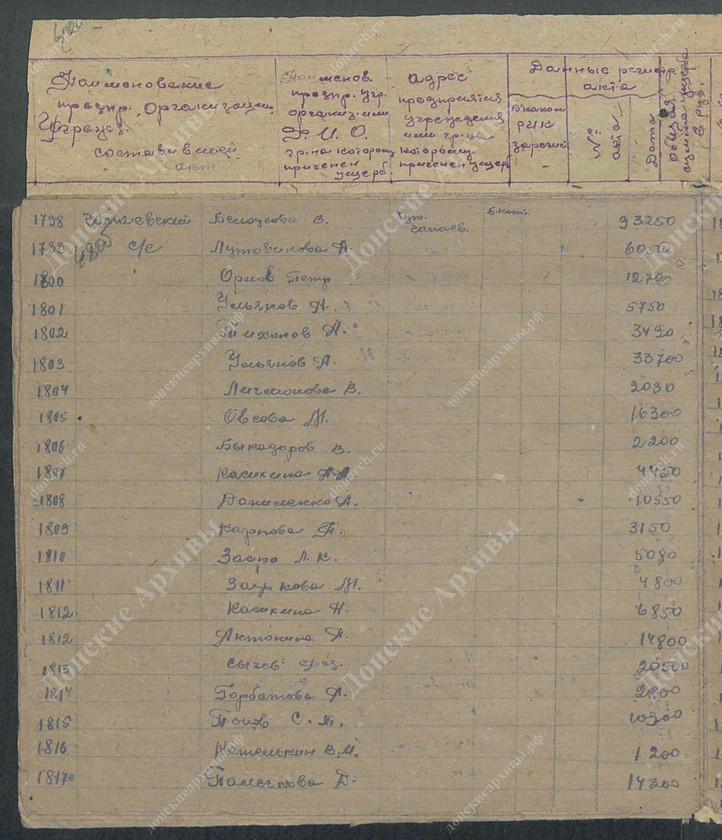 Наименование
предпр. Организации
Учрежд.
составившей
акт
Наименов.
предпр. учр.
организ. или
Ф. И. О.
гр-на которому
приченен
ущерб.
адрес
предприятия
учреждения
или гр-на
которому
приченен ущерб
Данные регистр
акта
В каком
РИК
зарегис
№
акта
Дата
общая
сумма ущерба
в руб.
1798 Белоусова В. чапаев. 93250
1799 с/с Лутовинова А. 6050
1800 Орлов Петр
1801 Ульянов А. 5750
1802 Тихонов А. 3490
1803 Ульянов А. 33700
1804 В. 2030
1805 Овсова М. 16300
1806 Быкадоров В. 2200
Касикина А.А. 4450
1808 Данилейко А. 10550
1809 Карпова 3150
1810 Л.К. 5080
1811 М. 4800
1812 Касикина Н. 6850
1812 Антонина А. 14800
1813 Сычев 20500
1814 Горбатова А. 2800
1815 Попов С. П. 10900
1816 Котелькин В.М. 1200
1817 14300
Донские Архивы
донскиеархивы.рф
donarch.ru